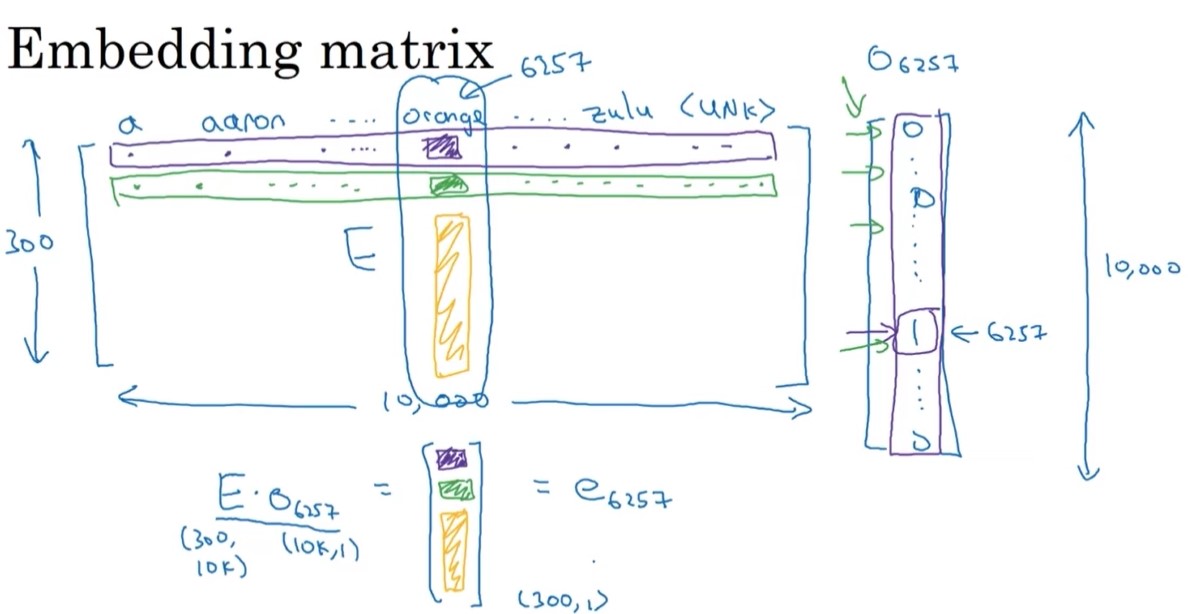 Embedding matrix
6257
O6257
a aaron ..... orange ..... zulu <UNK>
0
0
300
E
10,000
1 ← 6257
0
10,000
E · O6257 = [ ] = e6257
(300, 10K) (10K,1)
(300,1)